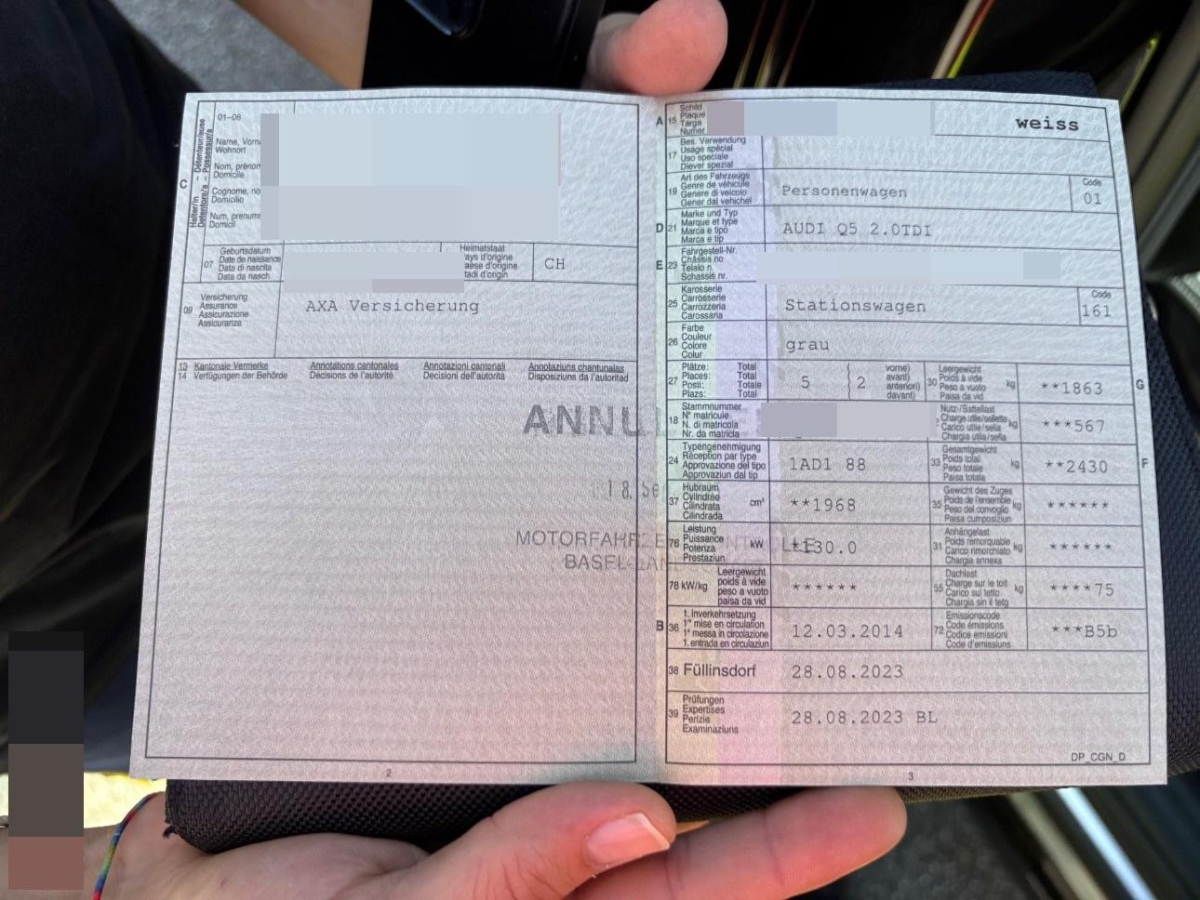 01-06
Halter/in – Détenteur/euse
Detentore/a – Possessur/a
C
Name, Vorn
Wohnort
Nom, prénom
Domicile
Cognome, no
Domicilio
Num, prenums
Domicil
07
Geburtsdatum
Date de naissance
Data di nascita
Data da nasch.
Heimatstaat
ays d'origine
aese d'origine
tadi d'origin
CH
09
Versicherung
Assurance
Assicurazione
Assicuranza
AXA Versicherung
13 Kantonale Vermerke Annotations cantonales Annotazioni cantonali Annotaziuns chantunalas
14 Verfügungen der Behörde Décisions de l'autorité Decisioni dell'autorità Disposiziuns da l'autoritad
ANNUL
18. Se
MOTORFAHRZE
BASEL-LAN
2
A 15
Schild
Plaque
Targa
Numer
weiss
17
Bes. Verwendung
Usage spécial
Uso speciale
Diever spezial
19
Art des Fahrzeugs
Genre de véhicule
Genere di veicolo
Gener dal vehichel
Personenwagen
Code
01
D 21
Marke und Typ
Marque et type
Marca e tipo
Marca e tip
AUDI Q5 2.0TDI
E 23
Fahrgestell-Nr.
Châssis no
Telaio n.
Schassis nr.
25
Karosserie
Carrosserie
Carrozzeria
Carossaria
Stationswagen
Code
161
26
Farbe
Couleur
Colore
Colur
grau
27
Plätze: Total
Places: Total
Posti: Totale
Plazs: Total
5
2
vorne)
avant)
anteriori)
davant)
30
Leergewicht
Poids à vide
Peso a vuoto
Paisa da vid
kg
**1863
G
18
Stammnummer
N° matricule
N. di matricola
Nr. da matricla
Nutz-/Sattellast
Charge utile/sellette
Carico utile/sella
Chargia utila/sella
kg
***567
24
Typengenehmigung
Réception par type
Approvazione del tipo
Approvaziun dal tip
1AD1 88
33
Gesamtgewicht
Poids total
Peso totale
Paisa totala
kg
**2430
F
37
Hubraum
Cylindrée
Cilindrata
Cilindrada
cm³
**1968
35
Gewicht des Zuges
Poids de l'ensemble
Peso del convoglio
Paisa cumposiziun
kg
******
76
Leistung
Puissance
Potenza
Prestaziun
kW
*130.0
31
Anhängelast
Poids remorquable
Carico rimorchiato
Chargia annexa
kg
******
78 kW/kg
Leergewicht
poids à vide
peso a vuoto
paisa da vid
******
55
Dachlast
Charge sur le toit
Carico sul tetto
Chargia sin il tetg
kg
****75
B 36
1. Inverkehrsetzung
1re mise en circulation
1a messa in circolazione
1. entrada en circulaziun
12.03.2014
72
Emissionscode
Code émissions
Codice emissioni
Code d'emissiuns
***B5b
38 Füllinsdorf 28.08.2023
39
Prüfungen
Expertises
Perizie
Examinaziuns
28.08.2023 BL
DP_CGN_D
3